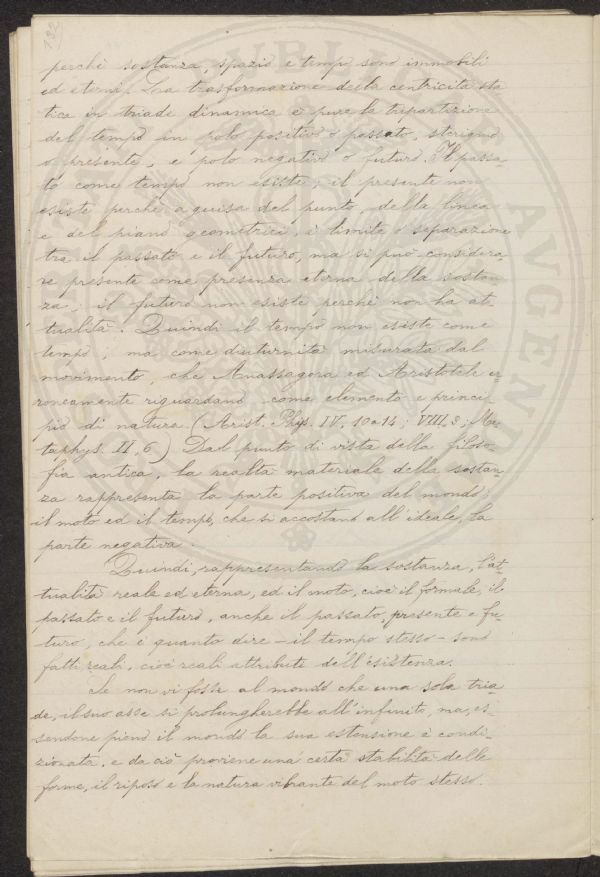 132
perchè sostanza, spazio e tempo sono immobili
ed eterni. La trasformazione della centricità sta
tica in triade dinamica è pure la tripartizione
del tempo in polo positivo o passato, sterigma
o presente, e polo negativo o futuro. Il passa-
to come tempo non esiste; il presente non
esiste perchè a guisa del punto, della linea
e del piano geometrici, è limite o separazione
tra il passato e il futuro, ma si può considera
re presente come presenza eterna della sostan-
za; il futuro non esiste perchè non ha at-
tualità. Quindi il tempo non esiste come
tempo, ma come diuturnità misurata dal
movimento, che Anassagora ed Aristotele er-
roneamente riguardano come elemento e princi-
pio di natura (Arist. Phys. IV, 10 a 14; VIII, 8; Me-
taphys. II, 6.) Dal punto di vista della filoso-
fia antica, la realtà materiale della sostan-
za rappresenta la parte positiva del mondo;
il moto ed il tempo, che si accostano all'ideale, la
parte negativa.
Quindi, rappresentando la sostanza, l'at-
tualità reale ed eterna, ed il moto, cioè il formale, il
passato e il futuro, anche il passato, presente e fu-
turo, che è quanto dire — il tempo stesso — sono
fatti reali, cioè reali attributi dell'esistenza.
Se non vi fosse al mondo che una sola tria
de, il suo asse si prolungherebbe all'infinito, ma, es-
sendone pieno il mondo la sua estensione è condi-
zionata, e da ciò proviene una certa stabilità delle
forme, il riposo e la natura vibrante del moto stesso.
PVBLIC
AVGENDA